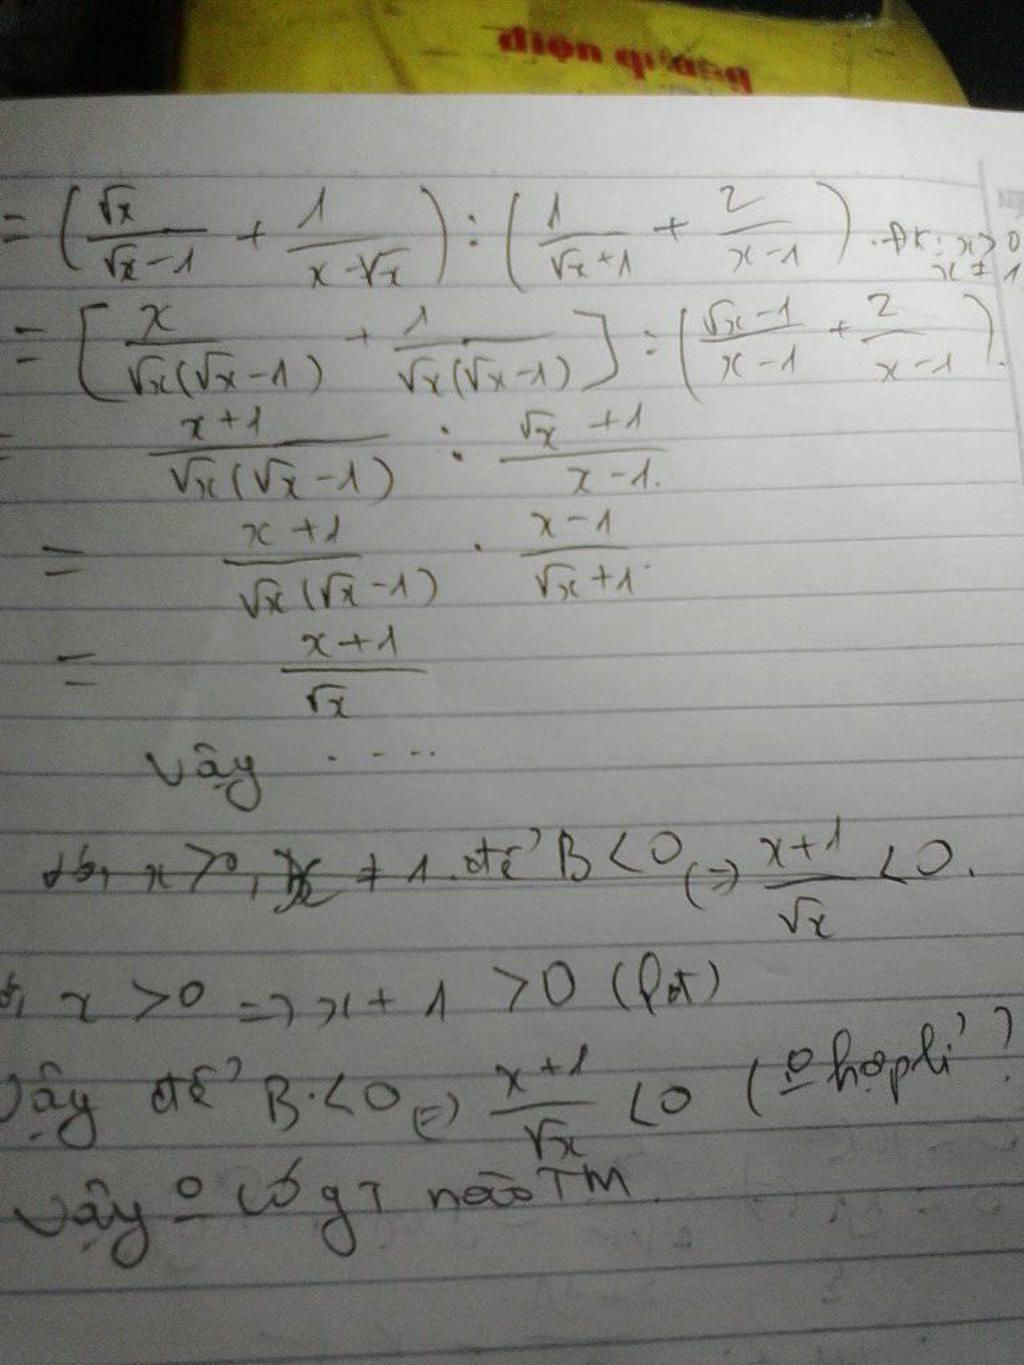 = (√x/(√x-1) + 1/(x-√x)) : (1/(√x+1) + 2/(x-1)). ĐK: x>0 x≠1
= [x/(√x(√x-1)) + 1/(√x(√x-1))] : ((√x-1)/(x-1) + 2/(x-1)).
= (x+1)/(√x(√x-1)) : (√x+1)/(x-1).
= (x+1)/(√x(√x-1)) . (x-1)/(√x+1).
= (x+1)/√x
Vậy ....
x>0, x ≠ 1. để B<0 (=) (x+1)/√x <0.
x >0 => x+1 >0
Vậy để B<0 (=) (x+1)/√x <0 (o hợp lí)
Vậy o có gT nào TM.